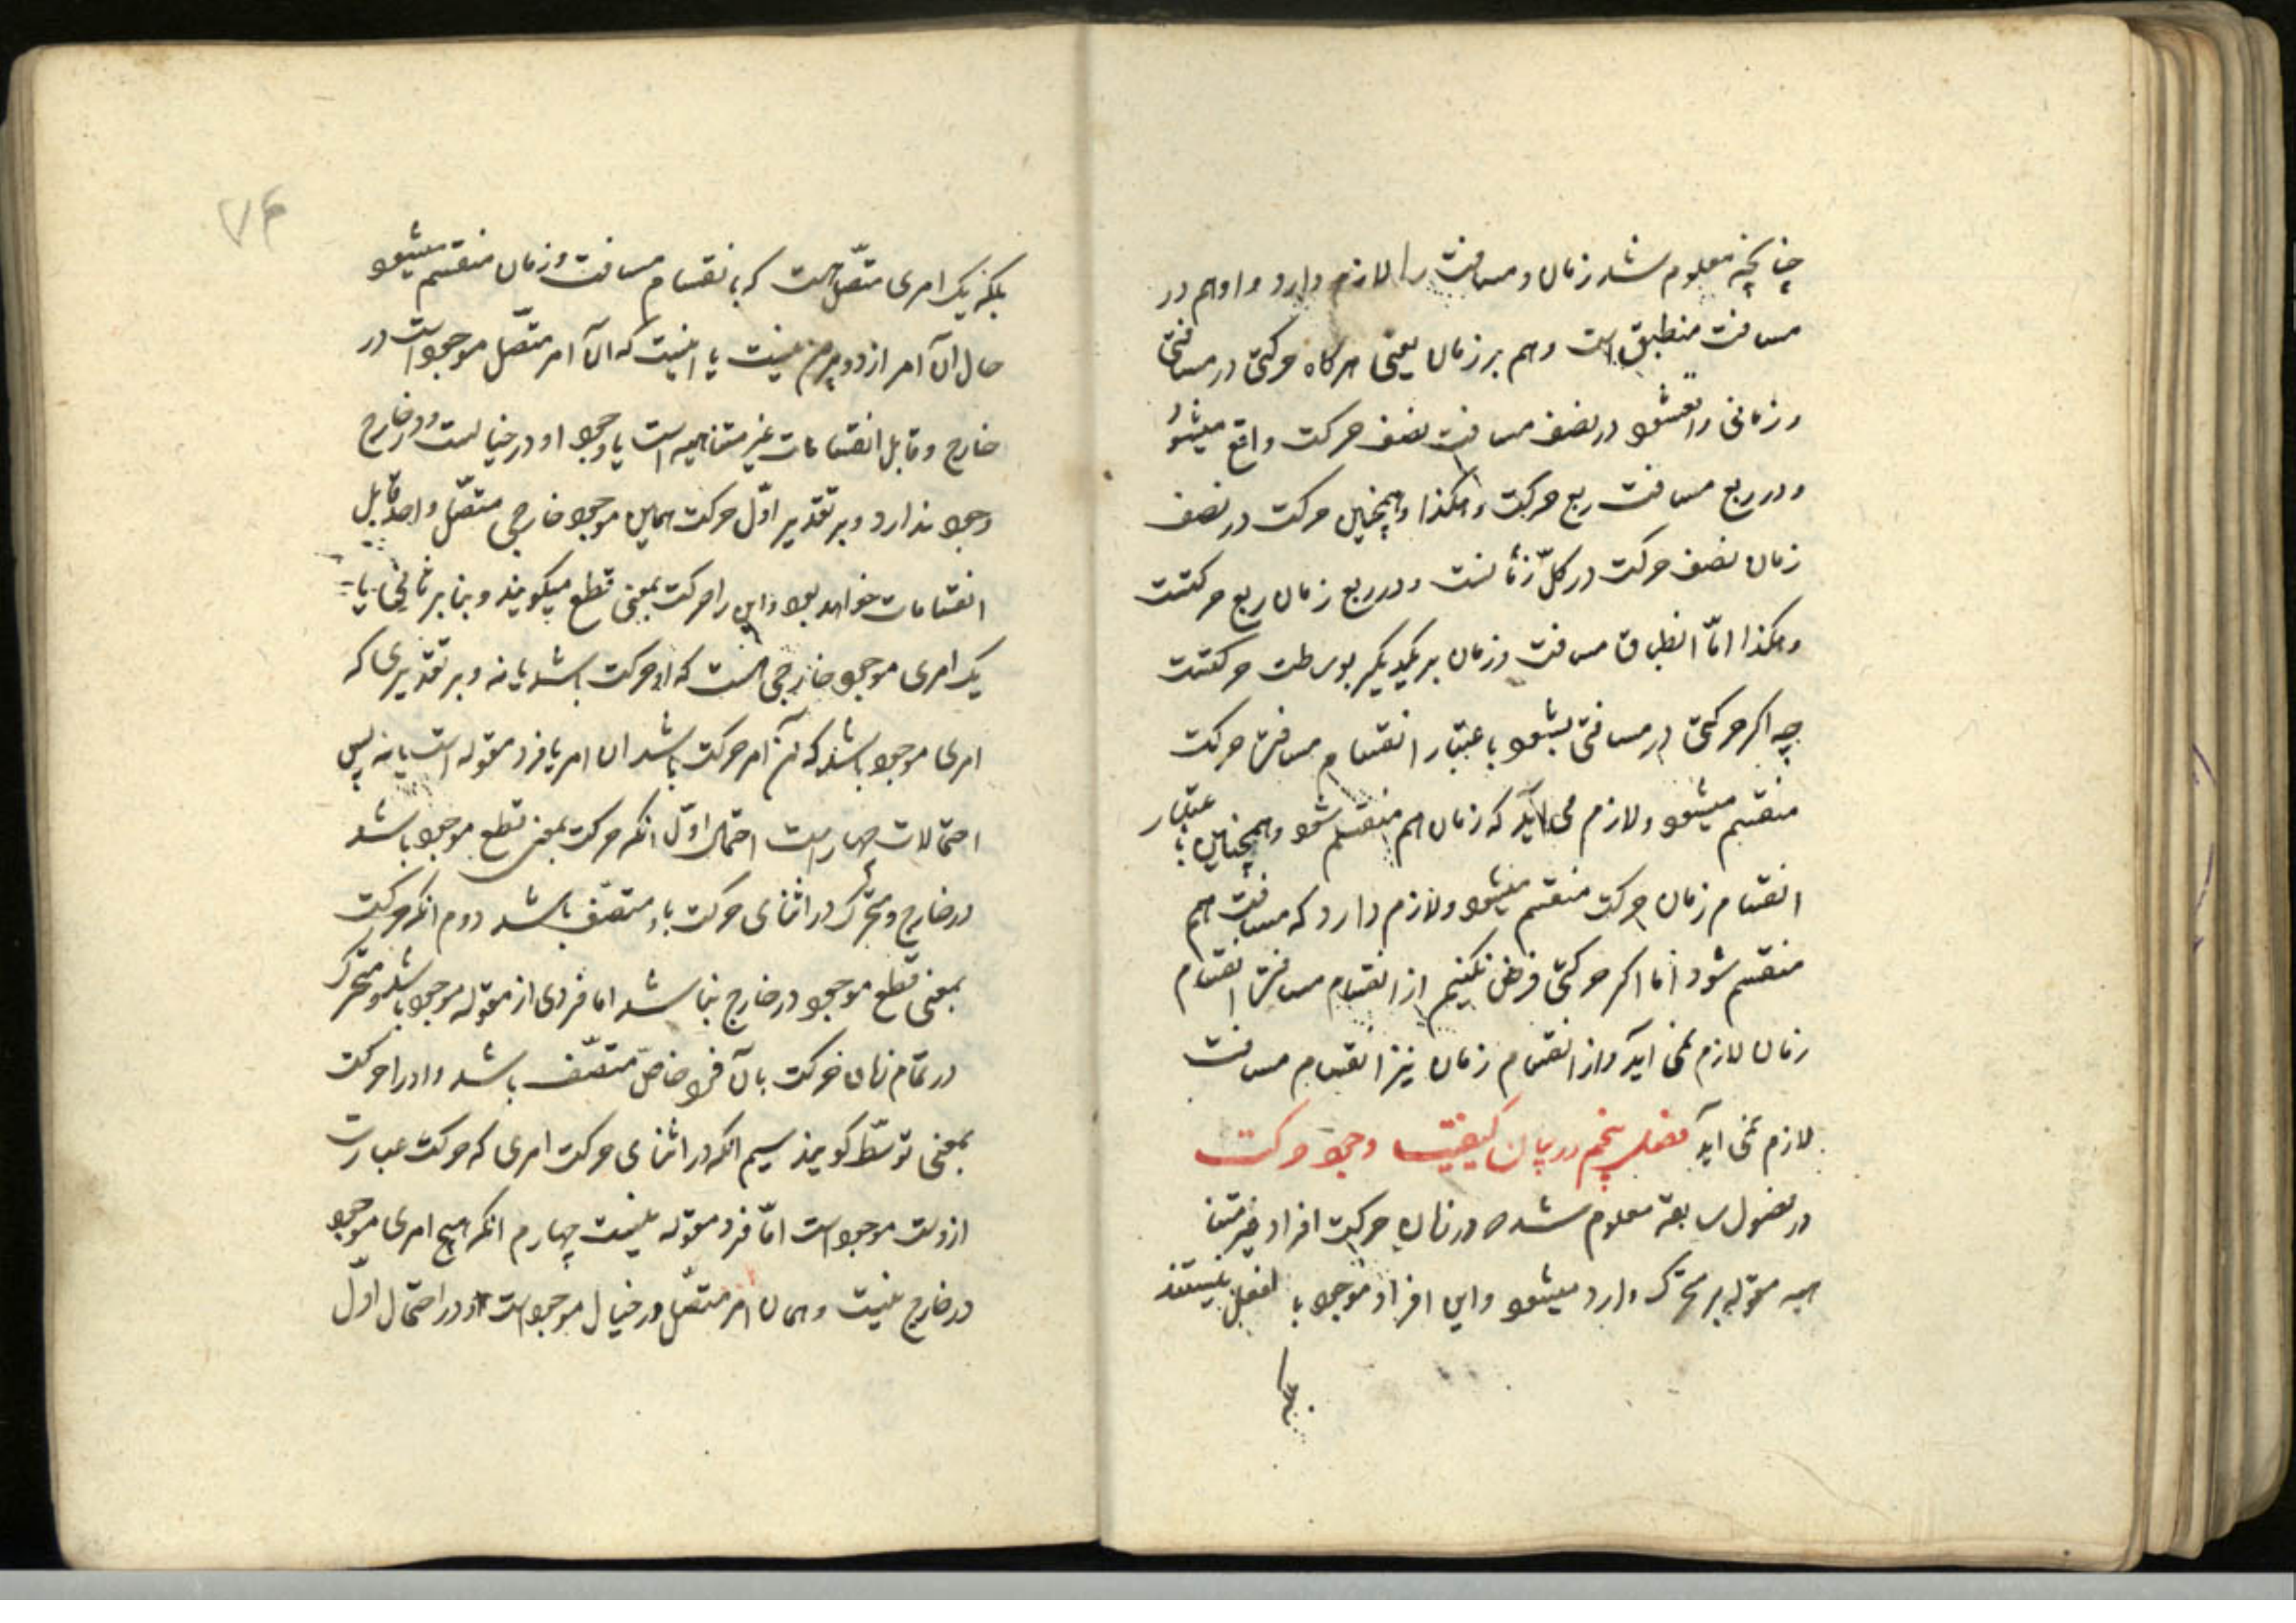 چنانچه معلوم شد زمان و مسافت را لازم دارد و او هم در
مسافت منطبق است و هم بر زمان یعنی هرکاه حرکتی در مسافتی
و زمانی واقعشود در نصف مسافت نصف حرکت واقع میشود
و در ربع مسافت ربع حرکت و هکذا و همچنین حرکت در نصف
زمان نصف حرکت در کلّ زمانست و در ربع زمان ربع حرکتست
و هکذا امّا انطباق مسافت و زمان بر یکدیکر بوساطت حرکتست
چه اکر حرکتی در مسافتی بشود باعتبار انقسام مسافت حرکت
منقسم میشود و لازم می آید که زمان هم منقسم شود و همچنین باعتبار
انقسام زمان حرکت منقسم میشود و لازم دارد که مسافت هم
منقسم شود امّا اکر حرکتی فرض نکنیم از انقسام مسافت انقسام
زمان لازم نمی آید و از انقسام زمان نیز انقسام مسافت
لازم نمی آید فصل پنجم در بیان کیفیت وجود حرکت
در فصول سابقه معلوم شد که در زمان حرکت افراد غیر متنا
هیه مقوله بر متحرک وارد میشود و این افراد موجود بالفعل نیستند
بلکه
۷۴
بلکه یک امری متصّل است که بانقسام مسافت و زمان منقسم میشود
حال آن امر از دو بیرون نیست یا اینست که آن امر متصّل موجود است در
خارج و قابل انقسامات غیر متناهیه است یا وجود او در خیالست و در خارج
وجود ندارد و بر تقدیر اوّل حرکت همین موجود خارجی متصّل واحد قابل
انقسامات خواهد بود و این را حرکت بمعنی قطع میکویند و بنا بر ثانی یا
یک امری موجود خارجی هست که او حرکت باشد یا نه و بر تقدیری که
امری موجود باشد که آن امر حرکت باشد ان امر یا فرد مقوله است یا نه پس
احتمالات چهار است احتمال اوّل انکه حرکت بمعنی قطع موجود باشد
در خارج و متحرک در اثنای حرکت باو متصّف باشد دوم انکه حرکت
بمعنی قطع موجود در خارج نباشد اما فردی از مقوله موجود باشد و متحرک
در تمام زمان حرکت بآن فرد خاصّ متصّف باشد و او را حرکت
بمعنی توسّط کویند سیم انکه در اثنای حرکت امری که حرکت عبارت
ازوست موجود است امّا فرد مقوله نیست چهارم انکه هیچ امری موجود
در خارج نیست و همان امر متصّل در خیال موجود است و در احتمال اوّل